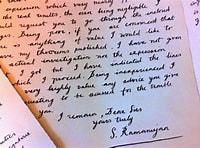 expression which very nearly
the real results the error being negligible
would request you to go through the
Being poor, if you are convinced that
is anything of value I would like to
have my theorems published. I have not given
actual investigation nor the expressions
I get but I have indicated the lines
which I proceed. Being inexperienced I
very highly value any advice you give
Requesting to be excused for the trouble
you. I remain, Dear Sir,
yours truly
S. Ramanujan